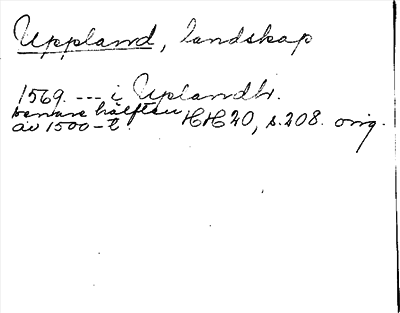 Uppland, landskap
1569. --- i Uplandh.
senare hälften HH 20, s. 208. orig.
av 1500-t.